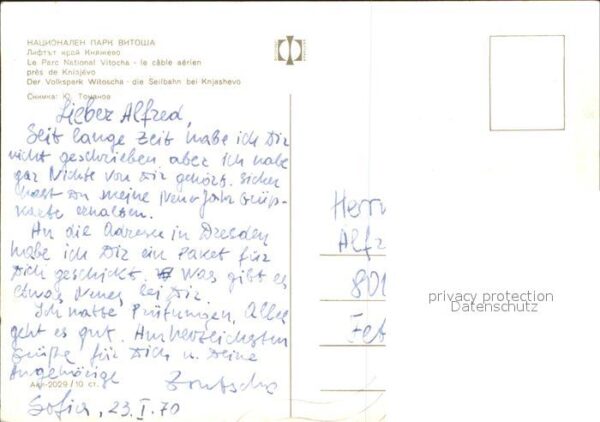 НАЦИОНАЛЕН ПАРК ВИТОША
Лифтът край Княжево
Le Parc National Vitocha - le câble aérien
près de Kniajévo
Der Volkspark Witoscha - die Seilbahn bei Knjashevo
Снимка: Ю. Томанов
Lieber Alfred,
Seit lange Zeit habe ich Dir
nicht geschrieben, aber ich habe
gar Nichts von Dir gehört. Sicher
hast Du meine Neue Jahr Grüß-
karte erhalten.
An die Adresse in Dresden
habe ich Dir ein Paket für
Dich geschickt. Was gibt es
etwas Neues bei Dir.
Ich hatte Prüfungen, Alles
geht es gut. Am herzlichsten
Grüße für Dich u. Deine
Angehörige
Акл-2029/10 ст.
Sofia, 23.I.70
Herrn
Alfr
801
privacy protection
Datenschutz